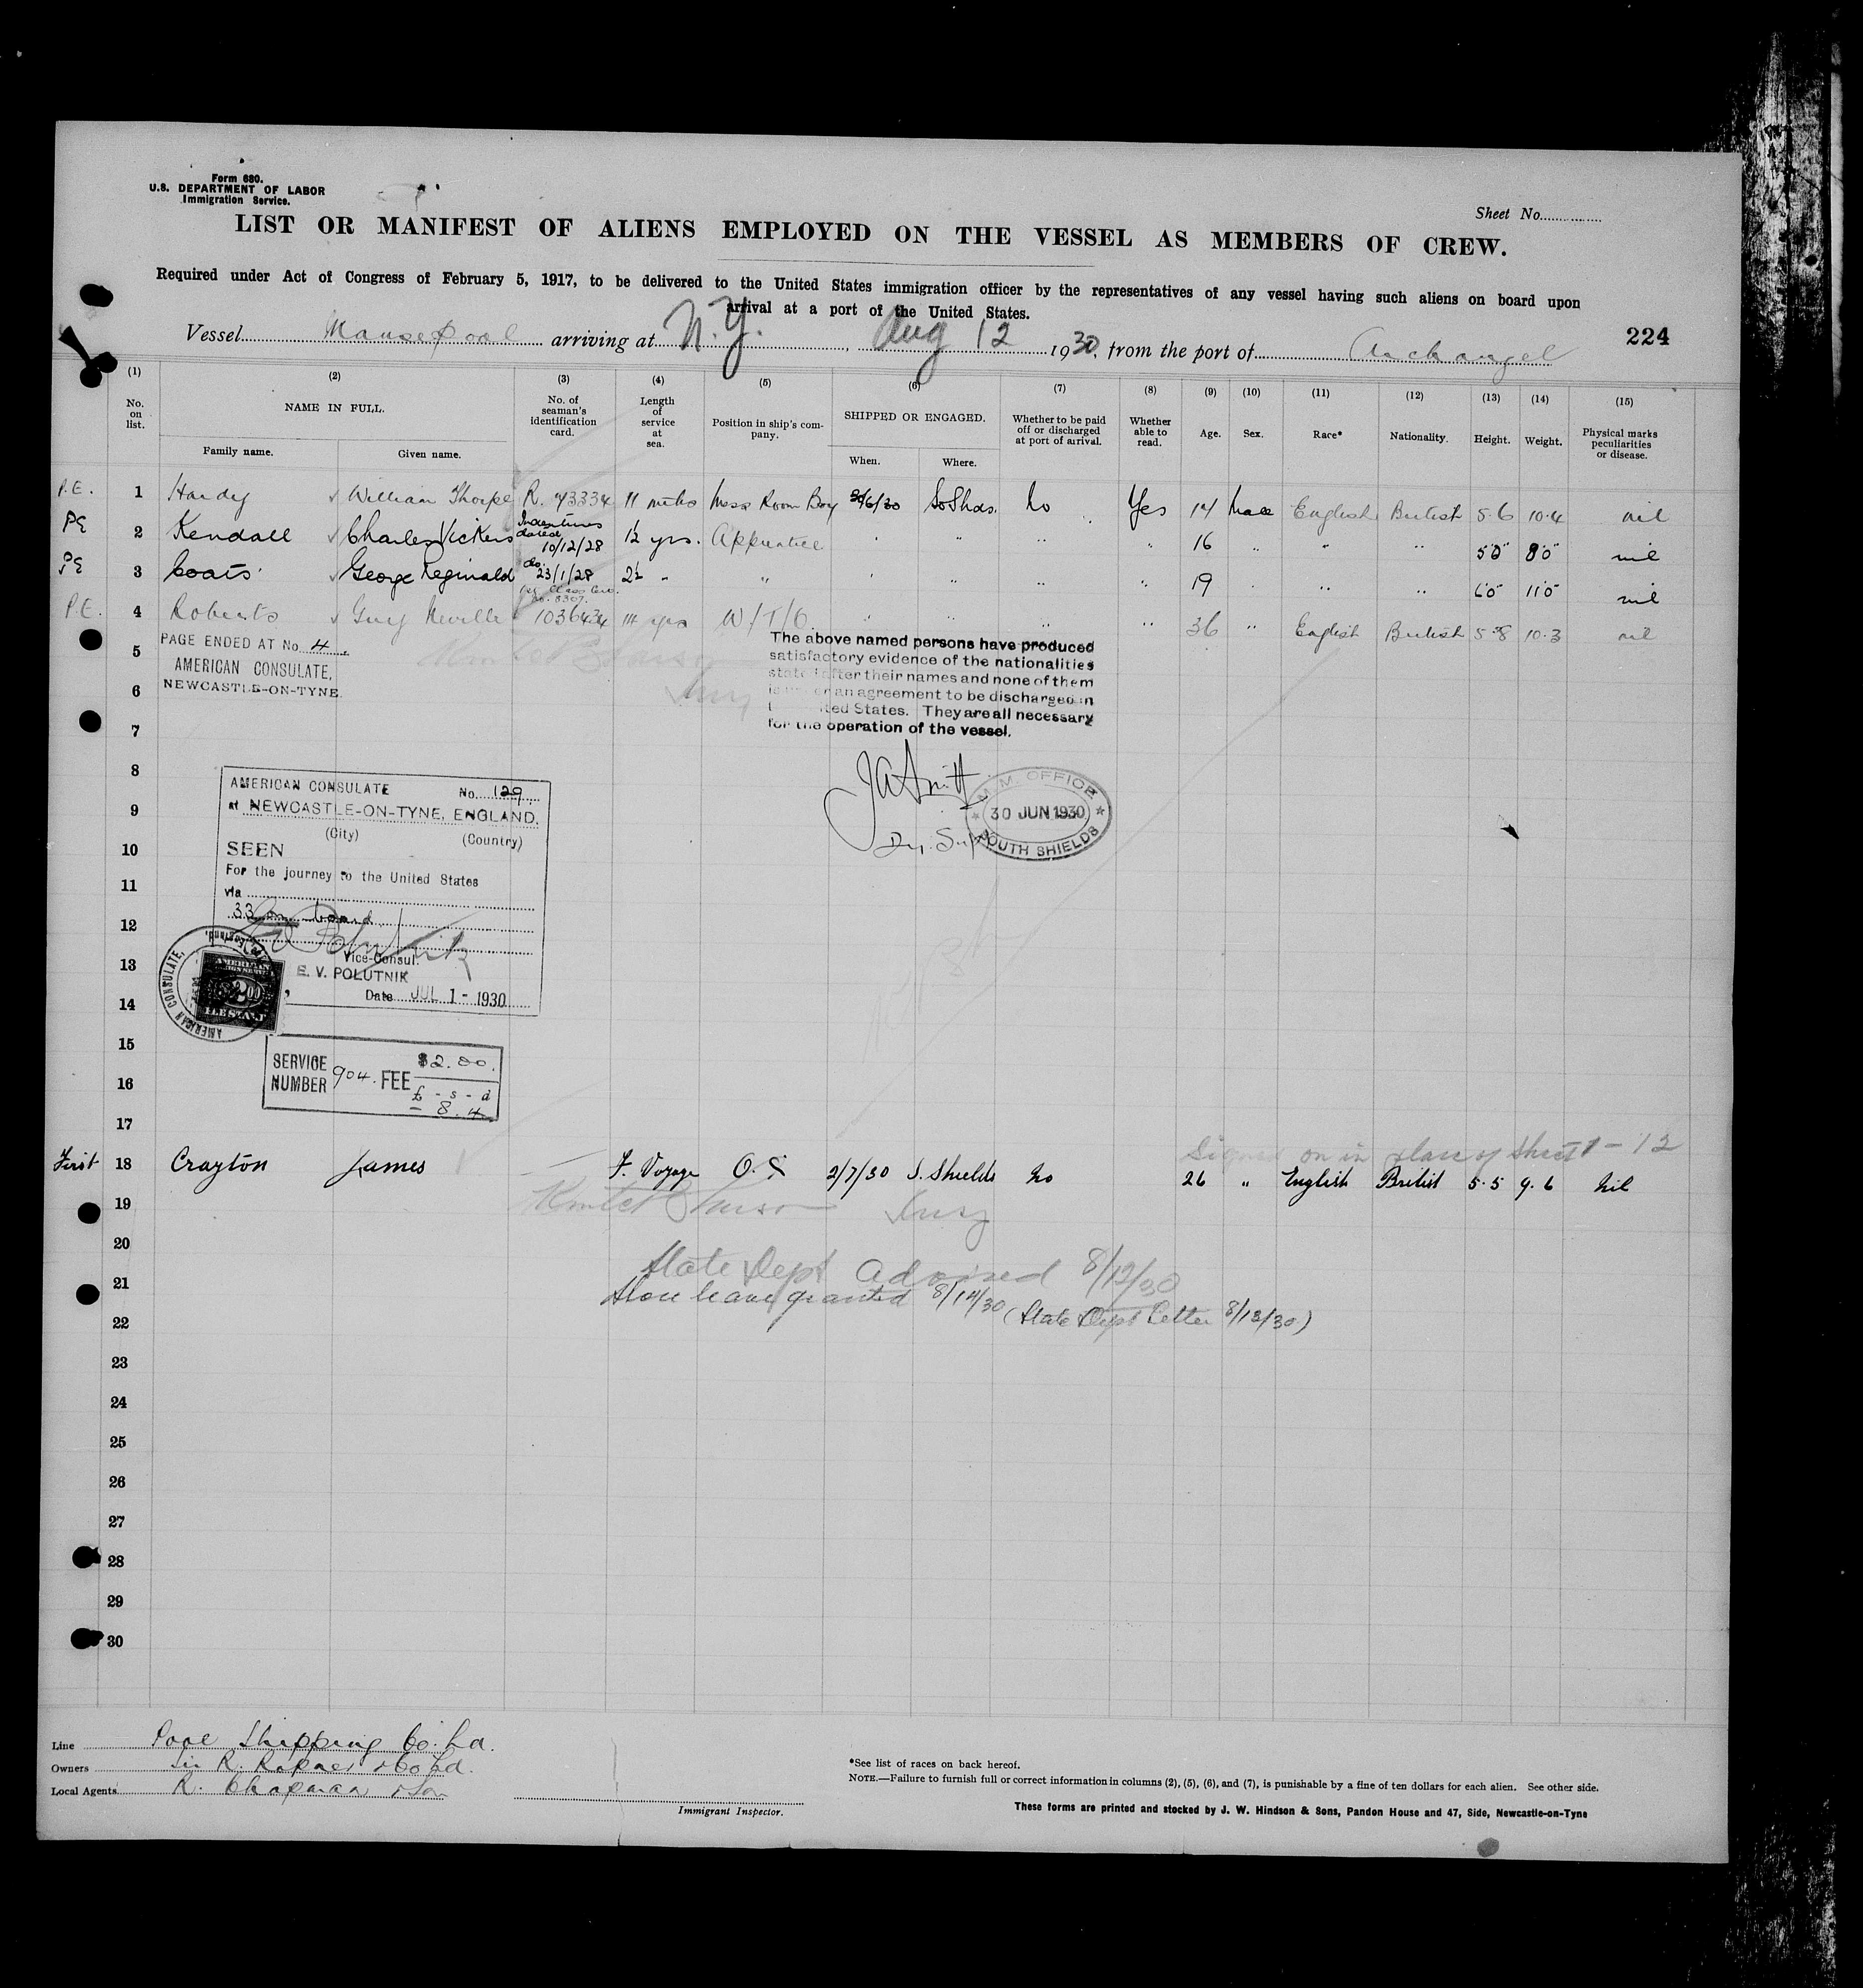 Form 680.
U.S. DEPARTMENT OF LABOR
Immigration Service.
Sheet No.
LIST OR MANIFEST OF ALIENS EMPLOYED ON THE VESSEL AS MEMBERS OF CREW.
Required under Act of Congress of February 5, 1917, to be delivered to the United States immigration officer by the representatives of any vessel having such aliens on board upon
arrival at a port of the United States.
Vessel Mansepool arriving at N.Y. Aug 12 1930, from the port of Archangel 224
(1) (2) (3) (4) (5) (6) (7) (8) (9) (10) (11) (12) (13) (14) (15)
No. on list. NAME IN FULL. Family name. Given name. No. of seaman's identification card. Length of service at sea. Position in ship's company. SHIPPED OR ENGAGED. When. Where. Whether to be paid off or discharged at port of arrival. Whether able to read. Age. Sex. Race* Nationality. Height. Weight. Physical marks peculiarities or disease.
P.E. 1 Hardy William Thorpe R. 73334 11 mths Mess Room Boy 30/6/30 So Shds. No Yes 17 Male English British 5.6 10.4 nil
PE 2 Kendall Charles Vickers Indentures dated 10/12/28 1½ yrs. Apprentice " " " " 16 " " " 5 0 8 0 nil
PE 3 Coats George Reginald do. 23/1/28 2½ " " " " " " 19 " " 6 0 11 0 nil
P.E. 4 Roberts Guy Neville 1036434 yrs W/T/O. " " " " 36 " English British 5.8 10.3 nil
5 PAGE ENDED AT No. 4.
AMERICAN CONSULATE,
6 NEWCASTLE-ON-TYNE.
The above named persons have produced
satisfactory evidence of the nationalities
stated after their names and none of them
is under an agreement to be discharged in
United States. They are all necessary
for the operation of the vessel.
7
8
J A Smitt
M.M. OFFICE
30 JUN 1930
SOUTH SHIELDS
AMERICAN CONSULATE No. 129
9 at NEWCASTLE-ON-TYNE, ENGLAND.
(City) (Country)
10 SEEN
For the journey to the United States
11 via
33 on board
12
Vice-Consul.
13 E. V. POLUTNIK
Date JUL 1 - 1930
AMERICAN CONSULATE,
14
15
SERVICE NUMBER 904. FEE $2.00.
16 £ - s - d
- 8. 4
17
Signed on in place of Sheet 1 - 12
First 18 Crayton James F. Voyage O.S 2/7/30 S. Shields No 26 " English British 5.5 9.6 Nil
19
20
State Dept Advised 8/12/30
21 Shore leave granted 8/14/30 (State Dept Letter 8/13/30)
22
23
24
25
26
27
28
29
30
Line Pool Shipping Co. Ld.
Owners Sir R. Ropner & Co Ld.
Local Agents R. Chapman & Son
Immigrant Inspector.
*See list of races on back hereof.
NOTE.—Failure to furnish full or correct information in columns (2), (5), (6), and (7), is punishable by a fine of ten dollars for each alien. See other side.
These forms are printed and stocked by J. W. Hindson & Sons, Pandon House and 47, Side, Newcastle-on-Tyne